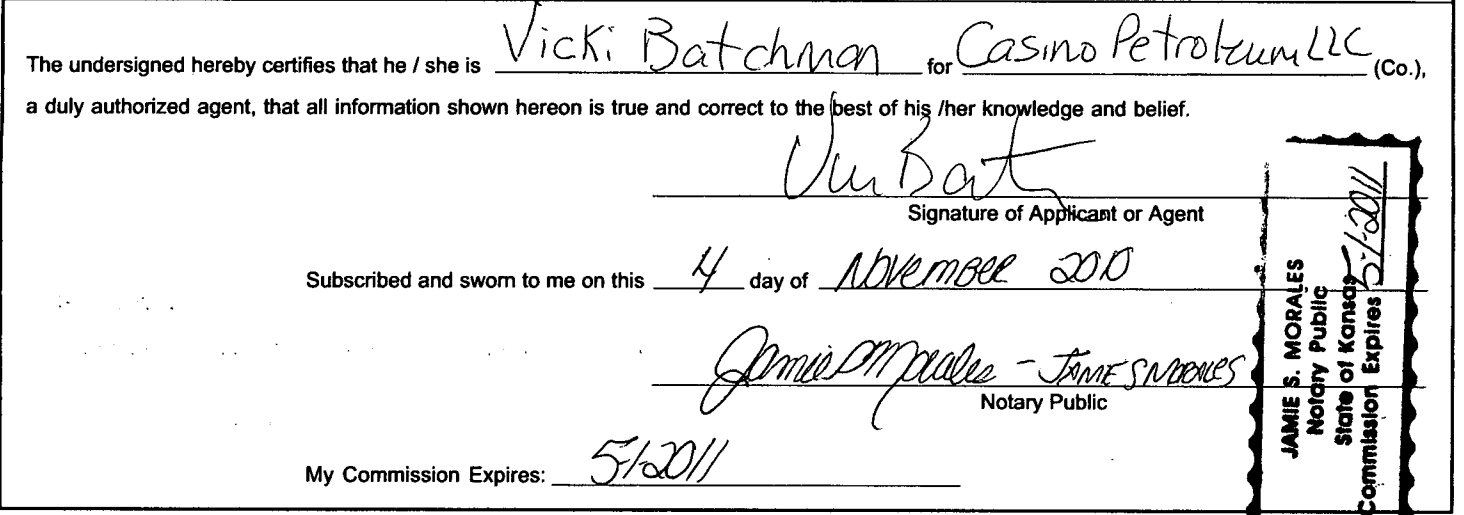 The undersigned hereby certifies that he / she is Vicki Batchman for Casino Petroleum LLC (Co.),
a duly authorized agent, that all information shown hereon is true and correct to the best of his /her knowledge and belief.
Signature of Applicant or Agent
Subscribed and sworn to me on this 4 day of November 2010
Jamie S Morales - JAMIE S MORALES
Notary Public
My Commission Expires: 5-1-2011
JAMIE S. MORALES
Notary Public
State of Kansas
Commission Expires 5-1-2011